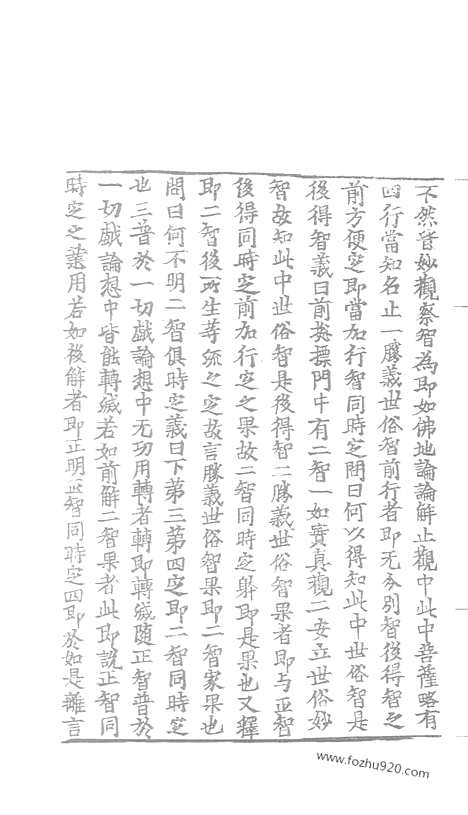 不然皆妙觀察智為即如佛地論論解止觀中此中菩薩略有
四行當知名止一勝義世俗智前行者即无分別智後得智之
前方便定即當加行智同時定問曰何以得知此中世俗智是
後得智義曰前英摽門中有二智一如實真觀二安立世俗妙
智故知此中世俗智是後得智二勝義世俗智果者即与正智
後得同時定前加行定之果故二智同時定躰即是果也又釋
即二智後所生等流之定故言勝義世俗智果即二智家果也
問曰何不明二智俱時定義曰下第三第四定即二智同時定
也三普於一切戲論想中无功用轉者轉即轉滅随正智普於
一切戲論想中皆能轉滅若如前解二智果者此即說正智同
時定之業用若如後解者即正明正智同時定四即於如是離言
www.fozhu920.com